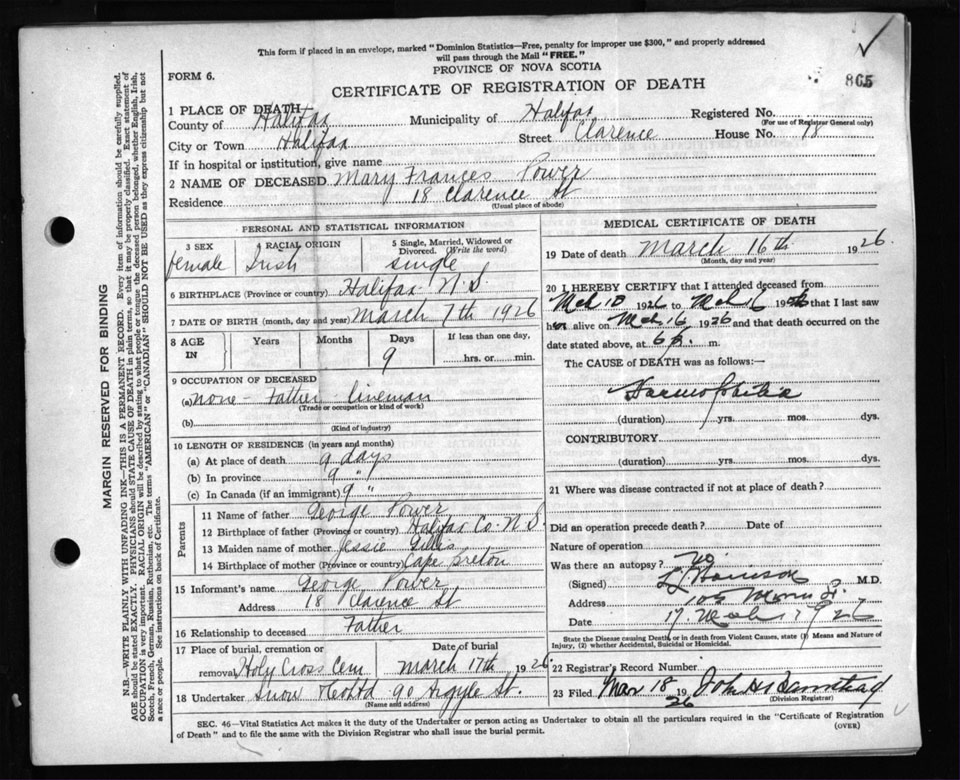 This form if placed in an envelope, marked "Dominion Statistics—Free, penalty for improper use $300," and properly addressed
will pass through the Mail "FREE."
PROVINCE OF NOVA SCOTIA
FORM 6.
865
CERTIFICATE OF REGISTRATION OF DEATH
1 PLACE OF DEATH
County of Halifax Municipality of Halifax Registered No.
(For use of Registrar General only)
City or Town Halifax Street Clarence House No. 18
If in hospital or institution, give name
2 NAME OF DECEASED Mary Frances Power
Residence 18 Clarence St
(Usual place of abode)
PERSONAL AND STATISTICAL INFORMATION
3 SEX RACIAL ORIGIN 5 Single, Married, Widowed or
Divorced. (Write the word)
female Irish single
6 BIRTHPLACE (Province or country) Halifax N.S
7 DATE OF BIRTH (month, day and year) March 7th 1926
8 AGE IN Years Months Days If less than one day,
9 hrs. or min.
9 OCCUPATION OF DECEASED
(a) none - Father lineman
(Trade or occupation or kind of work)
(b)
(Kind of industry)
10 LENGTH OF RESIDENCE (in years and months)
(a) At place of death 9 days
(b) In province 9 "
(c) In Canada (if an immigrant) 9 "
Parents
11 Name of father George Power
12 Birthplace of father (Province or country) Halifax Co. N.S.
13 Maiden name of mother Jessie Gillis
14 Birthplace of mother (Province or country) Cape Breton
15 Informant's name George Power
Address 18 Clarence St
16 Relationship to deceased Father
17 Place of burial, cremation or Date of burial
removal Holy Cross Cem March 17th 1926
18 Undertaker Snow & Co Ltd 90 Argyle St.
(Name and address)
MEDICAL CERTIFICATE OF DEATH
19 Date of death March 16th 1926
(Month, day and year)
20 I HEREBY CERTIFY that I attended deceased from
Mch 10 1926 to Mch 16 1926 that I last saw
her alive on Mch 16 1926 and that death occurred on the
date stated above, at 6 p. m.
The CAUSE of DEATH was as follows:—
Haemophilia
(duration) yrs. mos. dys.
CONTRIBUTORY
(duration) yrs. mos. dys.
21 Where was disease contracted if not at place of death?
Did an operation precede death? Date of
Nature of operation
Was there an autopsy? No
(Signed) M.D.
Address 105 Morris St.
Date 17 Mch 1926
State the Disease causing Death, or in death from Violent Causes, state (1) Means and Nature of
Injury, (2) whether Accidental, Suicidal or Homicidal.
22 Registrar's Record Number
23 Filed Mar 18 1926 John H
(Division Registrar)
SEC. 46—Vital Statistics Act makes it the duty of the Undertaker or person acting as Undertaker to obtain all the particulars required in the "Certificate of Registration
of Death" and to file the same with the Division Registrar who shall issue the burial permit.
(OVER)
MARGIN RESERVED FOR BINDING
N.B.—WRITE PLAINLY WITH UNFADING INK—THIS IS A PERMANENT RECORD. Every item of information should be carefully supplied.
AGE should be stated EXACTLY. PHYSICIANS should STATE CAUSE OF DEATH in plain terms, so that it may be properly classified. Exact statement of
OCCUPATION is very important. RACIAL ORIGIN will be described by stating to what people or tongue the deceased person belonged, whether English, Irish,
Scotch, French, German, Russian, Ruthenian, etc. The terms "AMERICAN" or "CANADIAN" SHOULD NOT BE USED as they express citizenship but not
a race or people. See instructions on back of Certificate.